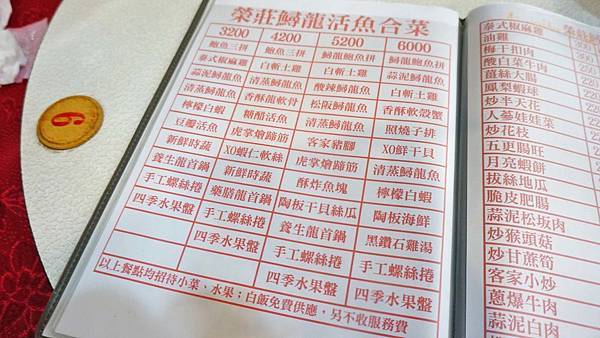 榮莊鱘龍活魚合菜
3200 4200 5200 6000
鮑魚三拼 鮑魚三拼 鱘龍鮑魚拼 鱘龍鮑魚拼
泰式椒麻雞 白斬土雞 白斬土雞 蒜泥鱘龍魚
蒜泥鱘龍魚 清蒸鱘龍魚 酸辣鱘龍魚 白斬土雞
清蒸鱘龍魚 香酥龍軟骨 松阪鱘龍魚 香酥軟殼蟹
檸檬白蝦 糖醋活魚 清蒸鱘龍魚 照燒子排
豆瓣活魚 虎掌燴蹄筋 客家豬腳 XO鮮干貝
新鮮時蔬 XO蝦仁軟絲 虎掌燴蹄筋 清蒸鱘龍魚
養生龍首鍋 新鮮時蔬 酥炸魚塊 檸檬白蝦
手工螺絲捲 藥膳龍首鍋 陶板干貝絲瓜 陶板海鮮
四季水果盤 手工螺絲捲 養生龍首鍋 黑鑽石雞湯
四季水果盤 手工螺絲捲 手工螺絲捲
四季水果盤 四季水果盤
以上餐點均招待小菜、水果；白飯免費供應，另不收服務費
9
榮莊
泰式椒麻雞 300
油雞 300
梅干扣肉
酸白菜牛肉
薑絲大腸
鳳梨蝦球
炒半天花
人蔘娃娃菜
炒花枝
五更腸旺
月亮蝦餅
拔絲地瓜
脆皮肥腸
蒜泥松坂肉
炒猴頭菇
炒甘蔗筍
客家小炒
蔥爆牛肉
蒜泥白肉